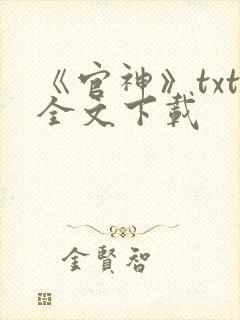 《官神》txt
全文下載
金賢智